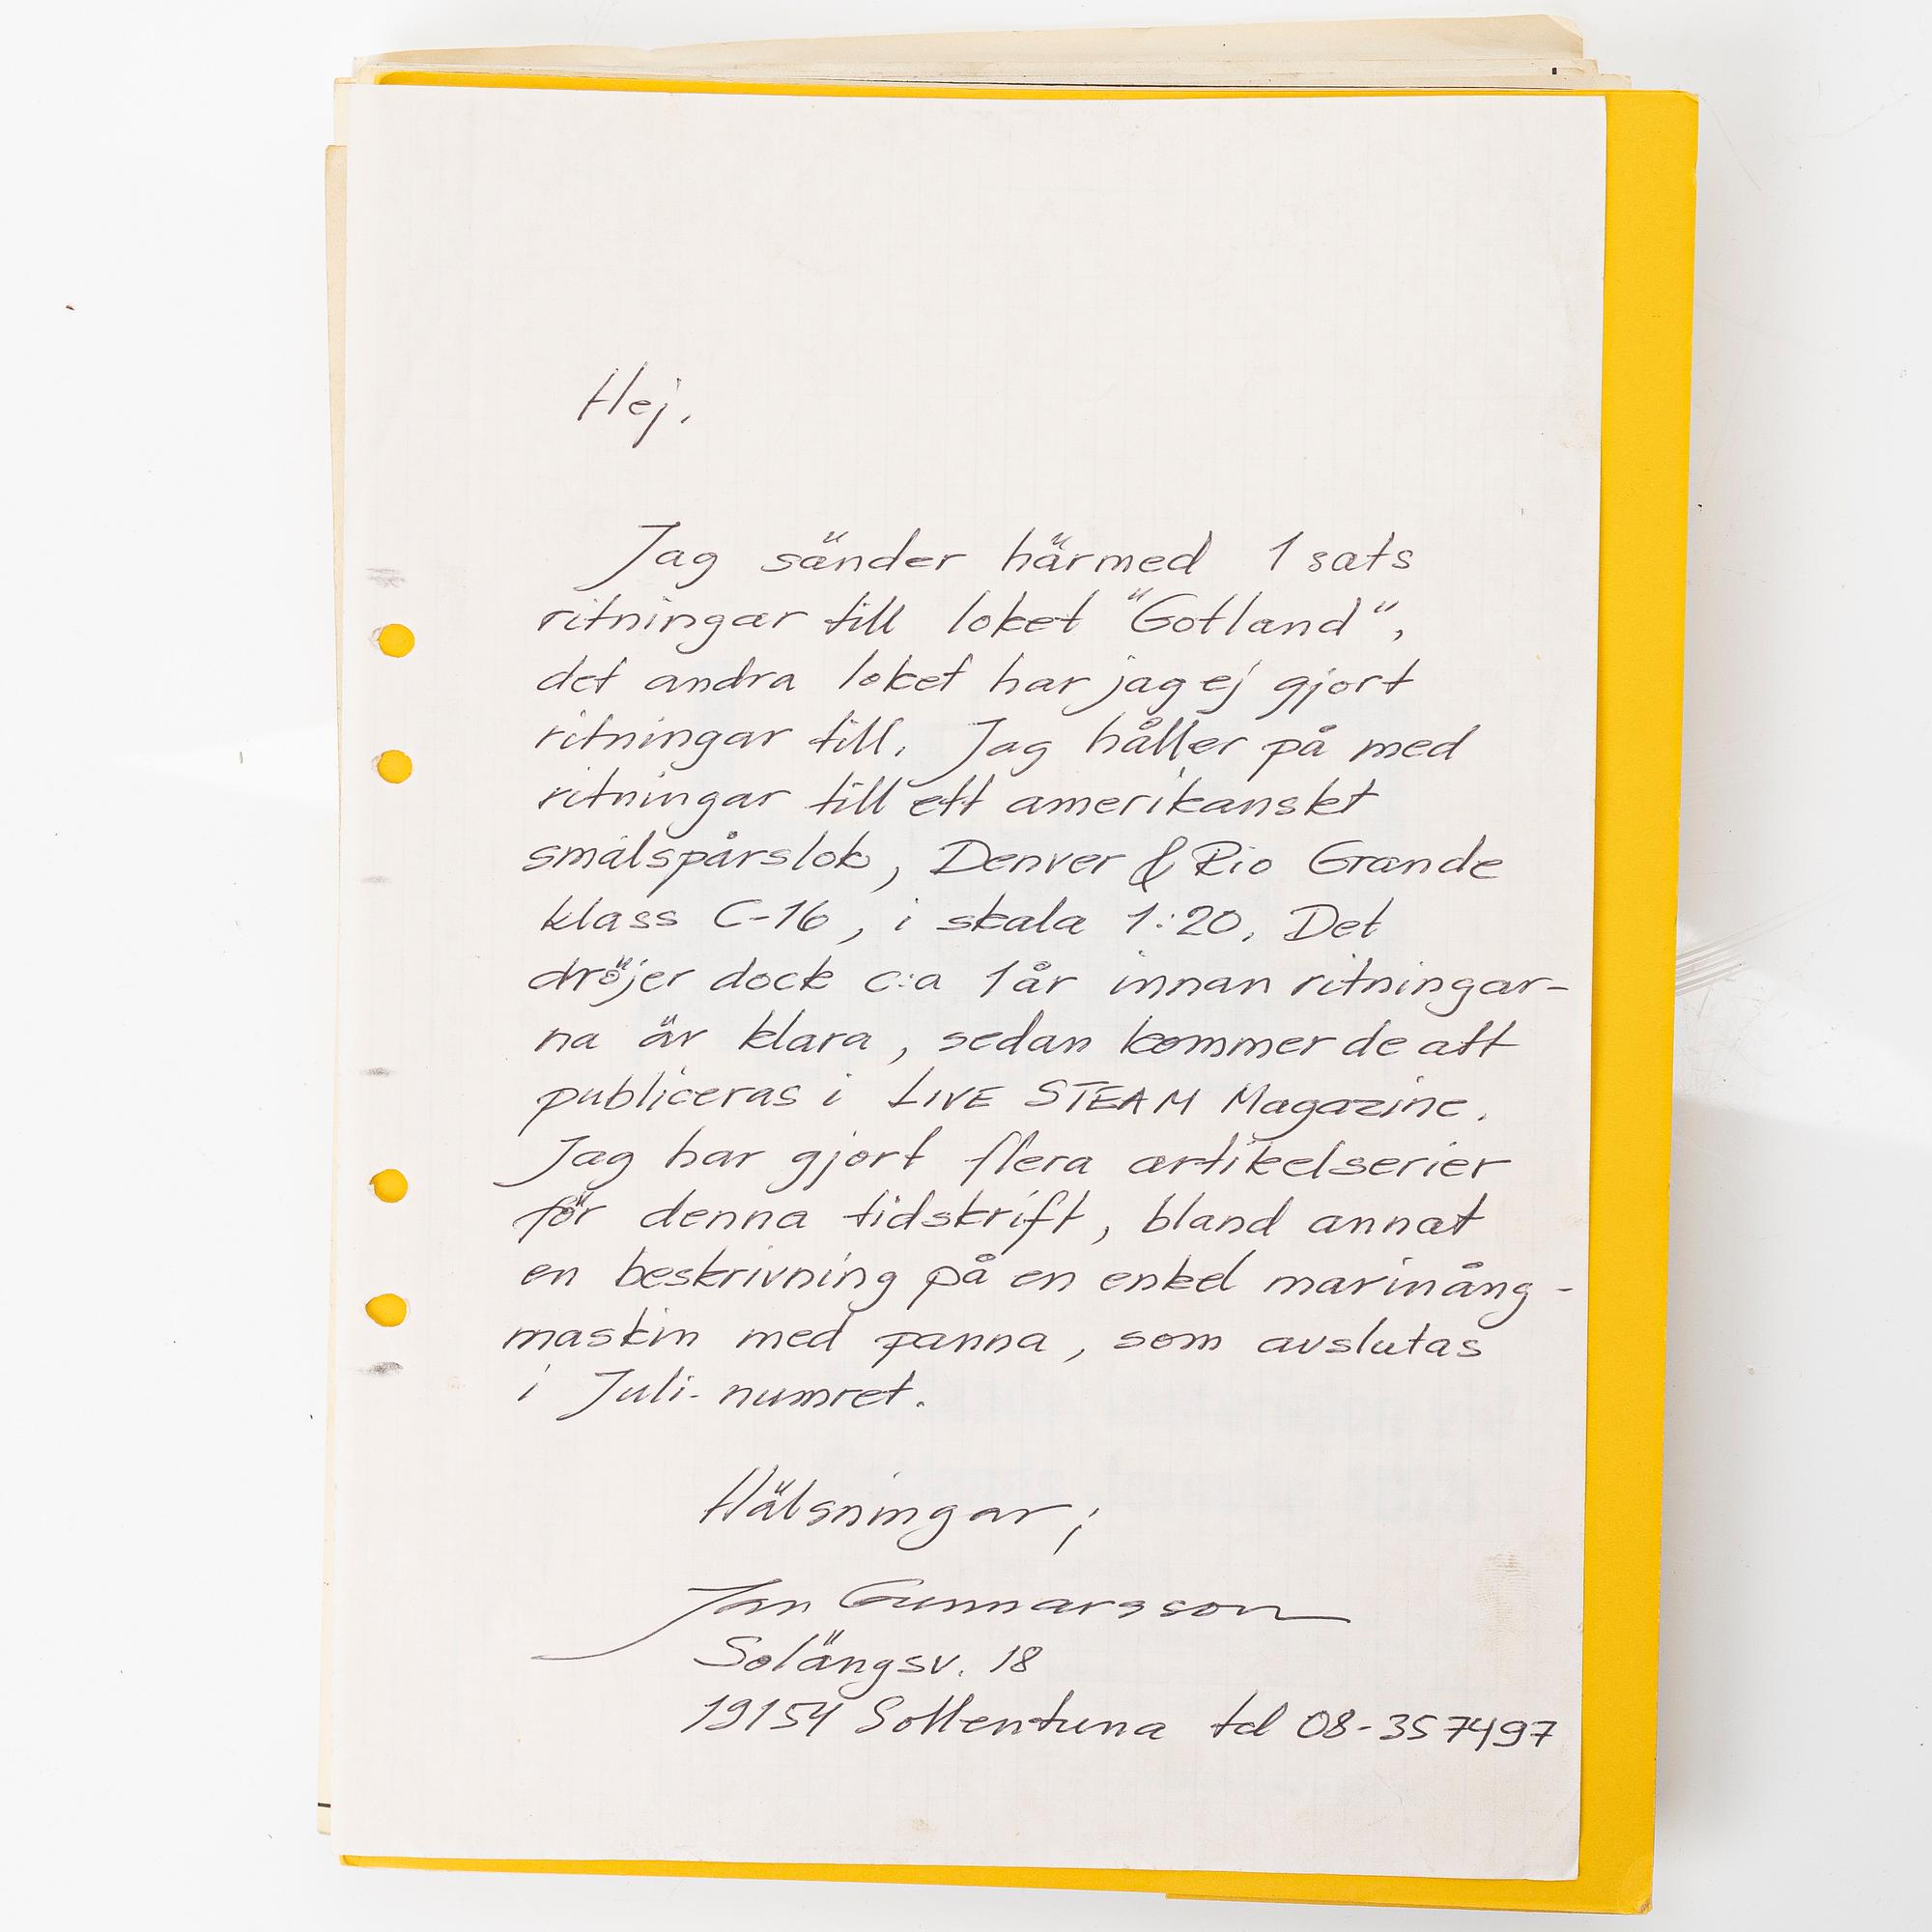 Hej.
Jag sänder härmed 1 sats
ritningar till loket "Gotland",
det andra loket har jag ej gjort
ritningar till. Jag håller på med
ritningar till ett amerikanskt
smalspårslok, Denver & Rio Grande
klass C-16, i skala 1:20. Det
dröjer dock c:a 1 år innan ritningar-
na är klara, sedan kommer de att
publiceras i LIVE STEAM Magazine.
Jag har gjort flera artikelserier
för denna tidskrift, bland annat
en beskrivning på en enkel marinång-
maskin med panna, som avslutas
i Juli-numret.
Hälsningar;
Jan Gunnarsson
Solängsv. 18
19154 Sollentuna tel 08-357497